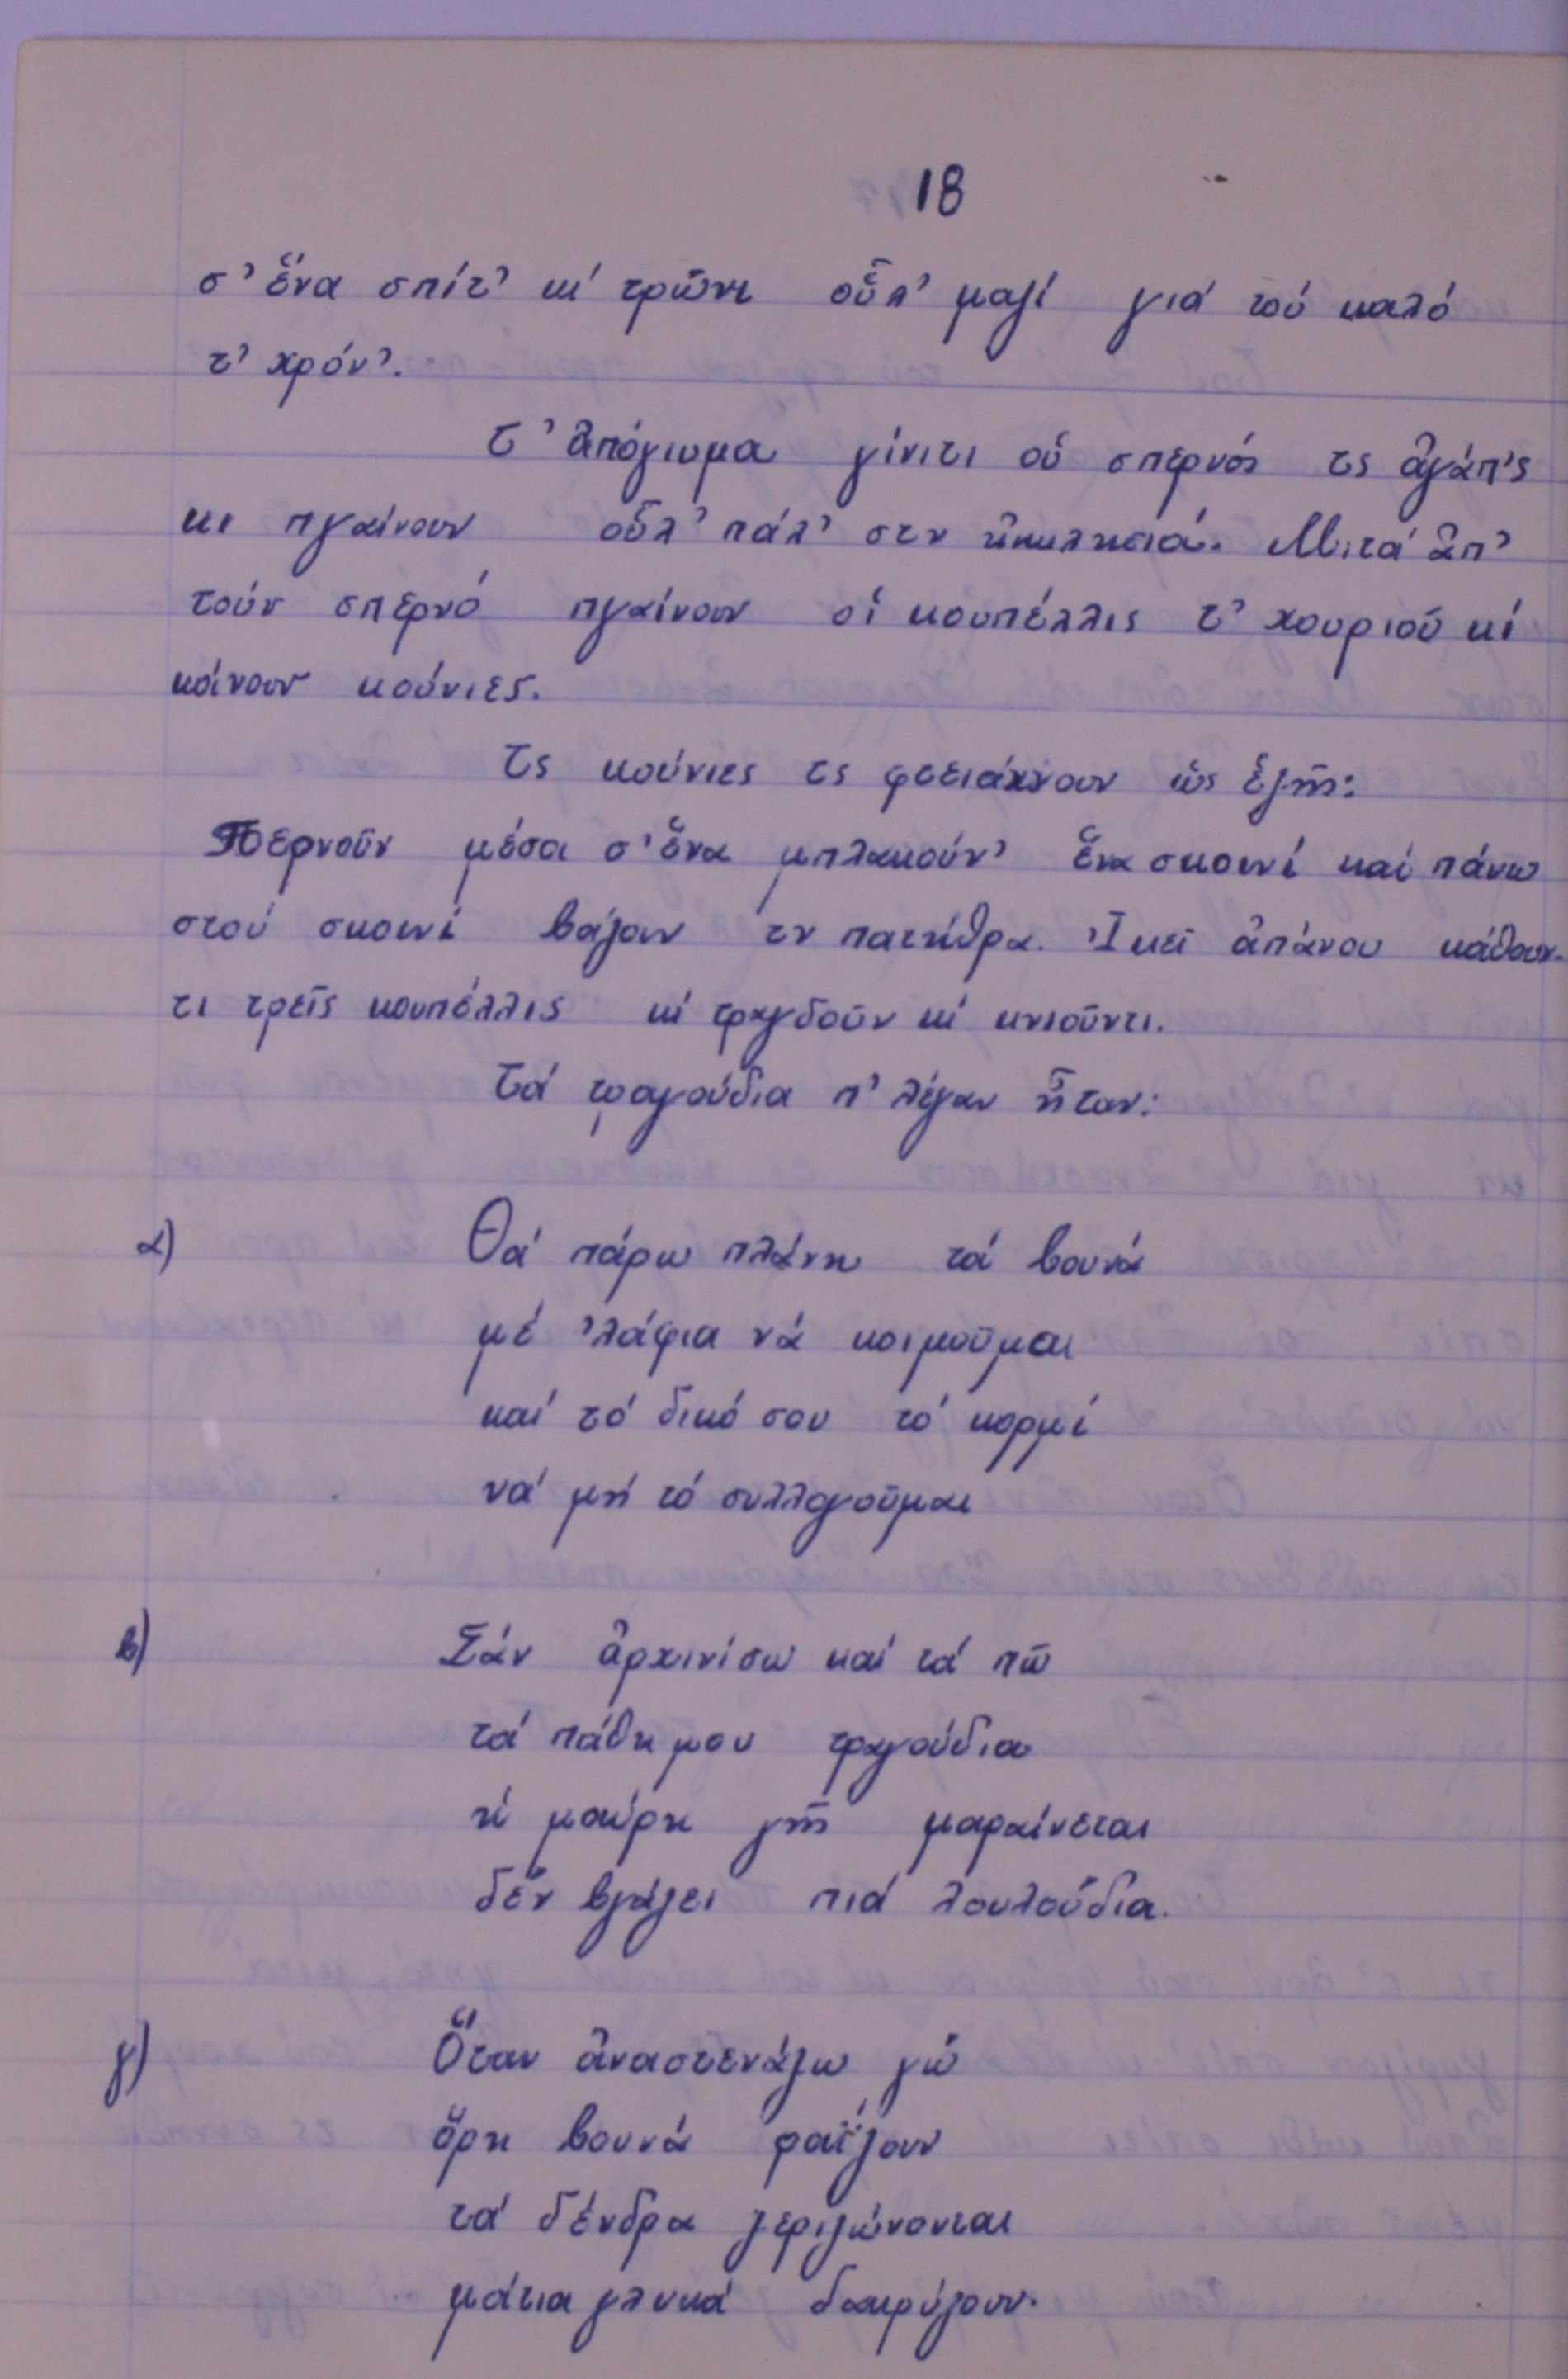 18
σ' ἕνα σπίτ' κί τρῶνι οὗλ' μαζί γιά τού καλό
τ' χρόν'.
Τ' ἀπόγιομα γίνιτι οὑ σπερνός τς ἀγάπ'ς
κι πγαίνουν οὗλ' πάλ' στν ἠκκλησιά. Μιτά ἀπ'
τούν σπερνό πγαίνουν οἱ κουπέλλις τ' χουριοῦ κί
κάνουν κούνιες.
Τς κούνιες τς φτειάχνουν ὡς ἑξῆς:
Περνοῦν μέσα σ' ἕνα μπλακούν' ἕνα σκοινί καί πάνω
στού σκοινί βάζουν τν πατήθρα. Ἰκεῖ ἀπάνου κάθουν-
τι τρεῖς κουπέλλις κί τραγδοῦν κί κνιοῦντι.
Τά τραγούδια π' λέγαν ἦταν:
α) Θά πάρω πλάνη τά βουνά
μέ 'λάφια νά κοιμοῦμαι
καί τό δικό σου τό κορμί
νά μή τό συλλογοῦμαι
β) Σάν ἀρχινίσω καί τά πῶ
τά πάθη μου τραγούδια
ἡ μαύρη γῆς μαραίνεται
δέν βγάζει πιά λουλούδια.
γ) Ὅταν ἀναστενάζω γώ
ὄρη βουνά ραΐζουν
τά δένδρα ξεριζώνονται
μάτια γλυκά δακρύζουν.